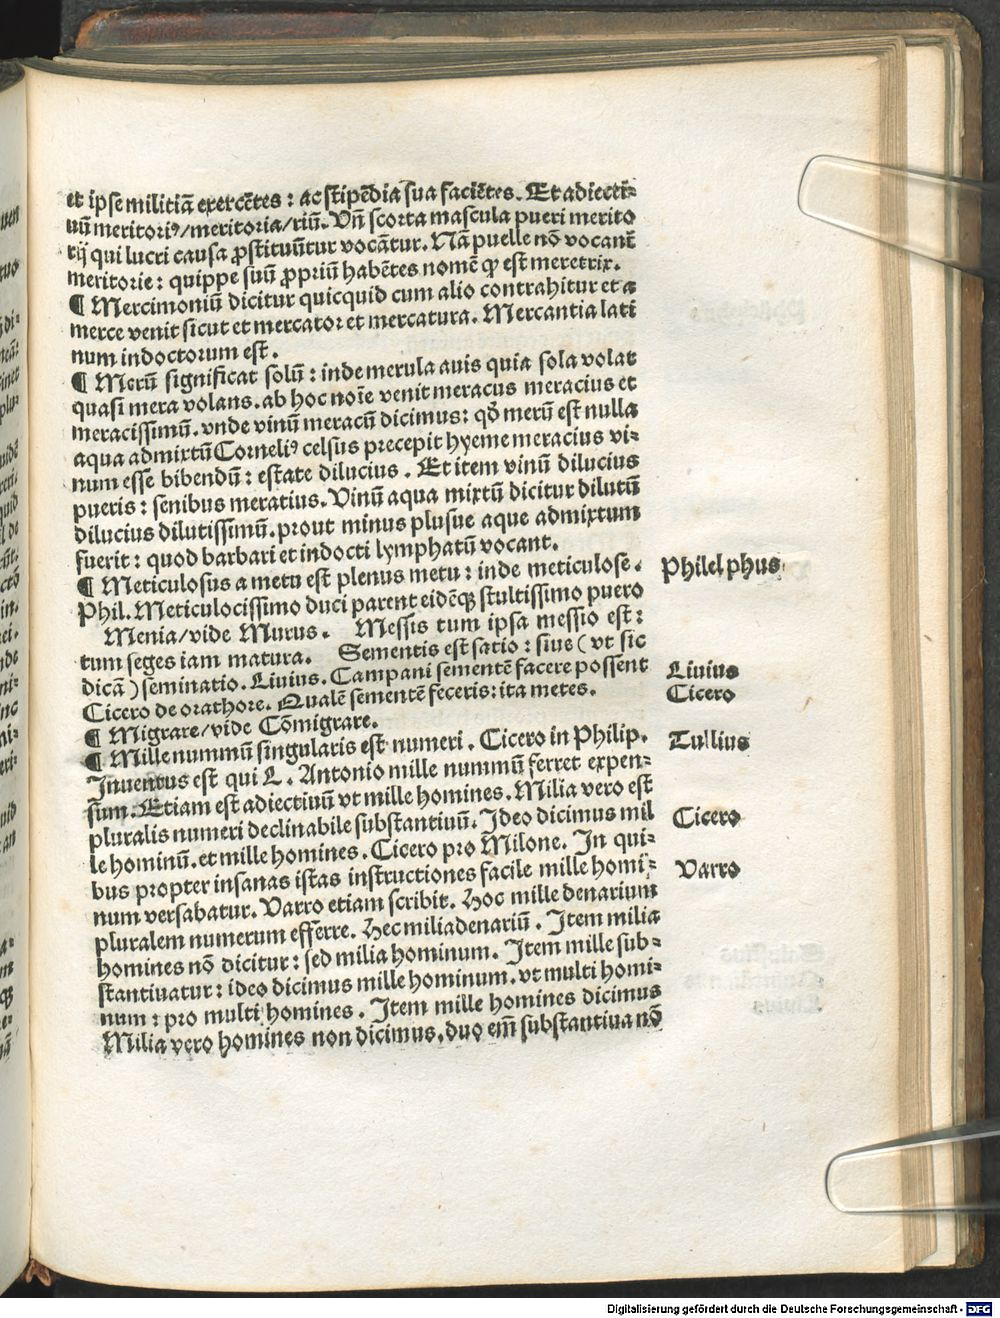 et ipse militiā exercētes : ac stipēdia sua faciētes. Et adiecti-
uū meritoriꝰ/meritoria/riū. Vn̄ scorta mascula pueri merito
rij qui lucri causa ꝓstituūtur vocātur. Nā puelle nō vocant̄
meritorie: quippe suū ꝓpriū habētes nomē ꝙ est meretrix.
¶ Mercimoniū dicitur quicquid cum alio contrahitur et a
merce venit sicut et mercator et mercatura. Mercantia lati
num indoctorum est.
¶ Merū significat solū : inde merula auis quia sola volat
quasi mera volans. ab hoc noīe venit meracus meracius et
meracissimū. vnde vinū meracū dicimus: qd̄ merū est nulla
aqua admixtū Corneliꝰ celsus precepit hyeme meracius vi-
num esse bibendū : estate dilucius. Et item vinū dilucius
pueris : senibus meratius. Vinū aqua mixtū dicitur dilutū
dilucius dilutissimū. prout minus plusue aque admixtum
fuerit : quod barbari et indocti lymphatū vocant.
¶ Meticulosus a metu est plenus metu : inde meticulose.
Phil. Meticulocissimo duci parent eidēqꝫ stultissimo puero
Menia/vide Murus. Messis tum ipsa messio est:
tum seges iam matura. Sementis est satio : siue ( vt sic
dicā ) seminatio. Liuius. Campani sementē facere possent
Cicero de orathore. Qualē sementē feceris: ita metes.
¶ Migrare/vide Cōmigrare.
¶ Mille nummū singularis est numeri. Cicero in Philip.
Inuentus est qui L. Antonio mille nummū ferret expen-
sum. Etiam est adiectiuū vt mille homines. Milia vero est
pluralis numeri declinabile substantiuū. Ideo dicimus mil
le hominū. et mille homines. Cicero pro Milone. In qui-
bus propter insanas istas instructiones facile mille homi-
num versabatur. Varro etiam scribit. Hoc mille denarium
pluralem numerum efferre. Hec milia denariū. Item milia
homines nō dicitur : sed milia hominum. Item mille sub-
stantiuatur : ideo dicimus mille hominum. vt multi homi-
num : pro multi homines. Item mille homines dicimus
Milia vero homines non dicimus. duo em̄ substantiua nō
Philelphus
Liuius
Cicero
Tullius
Cicero
Varro
Digitalisierung gefördert durch die Deutsche Forschungsgemeinschaft - DFG